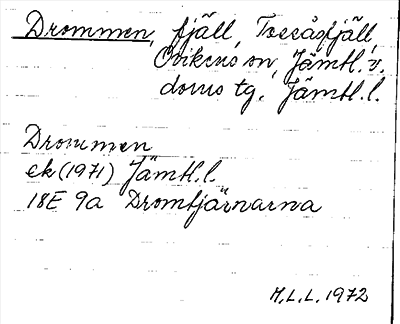 Drommen, fjäll, Tossåsfjäll,
Ovikens sn, Jämtl. v.
doms tg, Jämtl. l.
Drommen
ek (1971) Jämtl. l.
18E 9a Dromtjärnarna
M.L.L. 1972